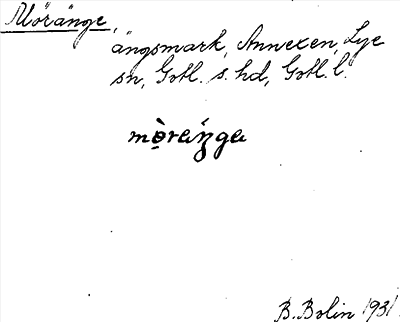 Moränge,
ängsmark, Annexen, Lye
sn, Gotl. s. hd, Gotl. l.
mòrεŋ́ga
B. Bolin 1931.